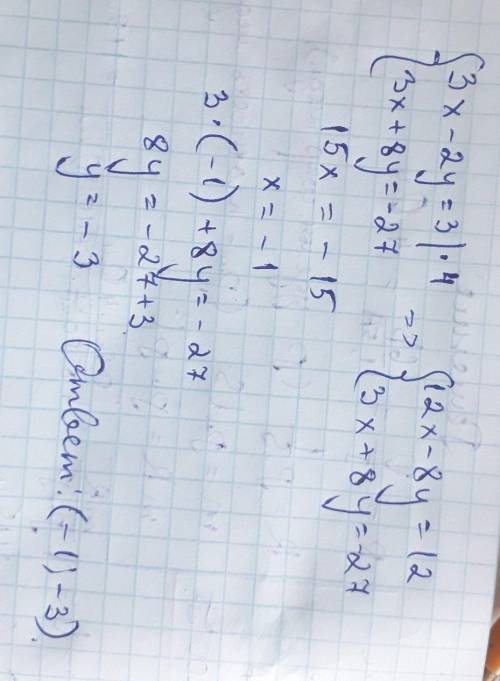 { 3x - 2y = 3 | · 4 => { 12x - 8y = 12
{ 3x + 8y = -27 { 3x + 8y = -27
15x = -15
x = -1
3 · (-1) + 8y = -27
8y = -27 + 3
y = -3
Ответ: (-1) -3)